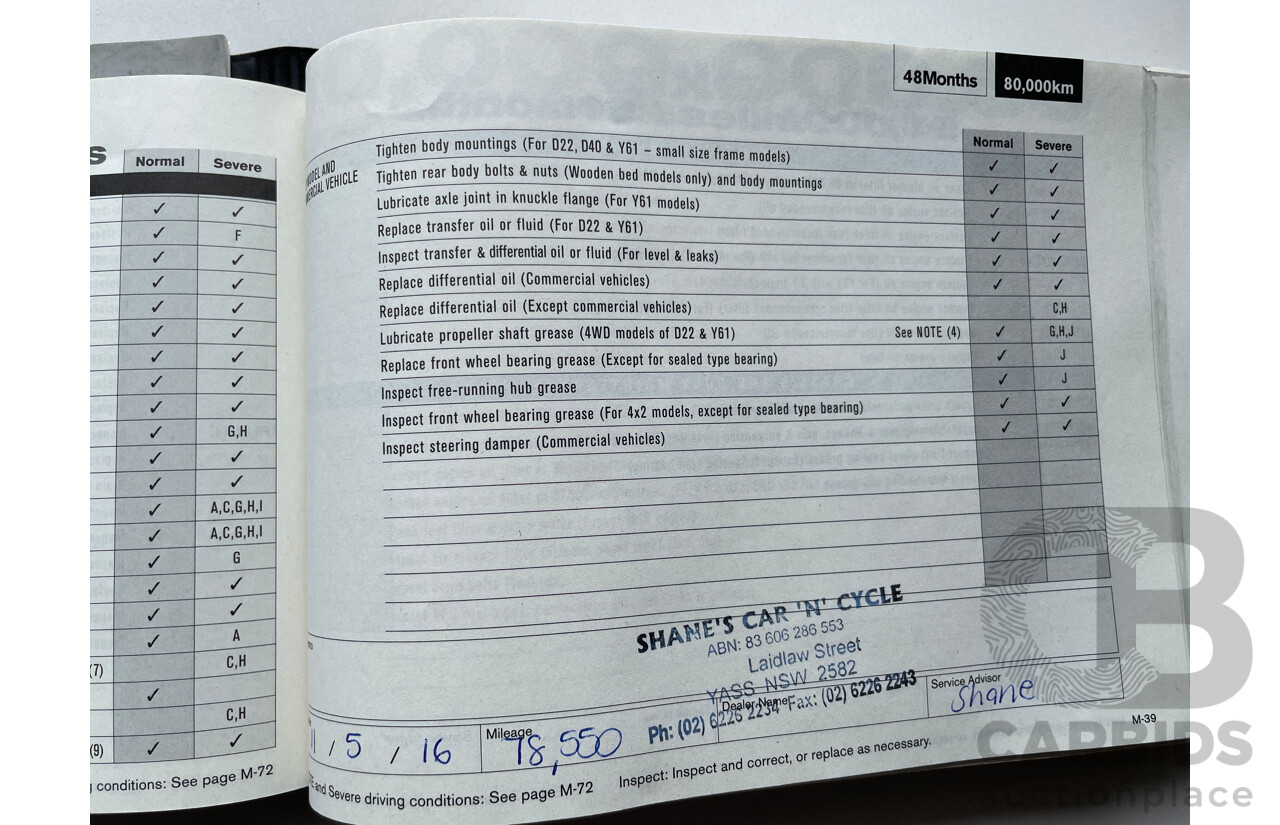 S Normal Severe
✓ ✓
✓ F
✓ ✓
✓ ✓
✓ ✓
✓ ✓
✓ ✓
✓ ✓
✓ ✓
✓ G,H
✓ ✓
✓ ✓
✓ A,C,G,H,I
✓ A,C,G,H,I
✓ G
✓ ✓
✓ ✓
✓ A
(7) C,H
✓
C,H
(9) ✓ ✓
conditions: See page M-72
48Months 80,000km
Normal Severe
VEHICLE
Tighten body mountings (For D22, D40 & Y61 – small size frame models) ✓ ✓
Tighten rear body bolts & nuts (Wooden bed models only) and body mountings ✓ ✓
Lubricate axle joint in knuckle flange (For Y61 models) ✓ ✓
Replace transfer oil or fluid (For D22 & Y61) ✓ ✓
Inspect transfer & differential oil or fluid (For level & leaks) ✓ ✓
Replace differential oil (Commercial vehicles) ✓ ✓
Replace differential oil (Except commercial vehicles) C,H
Lubricate propeller shaft grease (4WD models of D22 & Y61) See NOTE (4) ✓ G,H,J
Replace front wheel bearing grease (Except for sealed type bearing) ✓ J
Inspect free-running hub grease ✓ J
Inspect front wheel bearing grease (For 4x2 models, except for sealed type bearing) ✓ ✓
Inspect steering damper (Commercial vehicles) ✓ ✓
SHANE'S CAR 'N' CYCLE
ABN: 83 606 286 553
Laidlaw Street
YASS NSW 2582
Ph: (02) 6226 2234 Fax: (02) 6226 2243
/ 5 / 16
Mileage
78,550
Dealer Name
Service Advisor
Shane
and Severe driving conditions: See page M-72
Inspect: Inspect and correct, or replace as necessary.
M-39
CB
CARBIDS
auctionplace